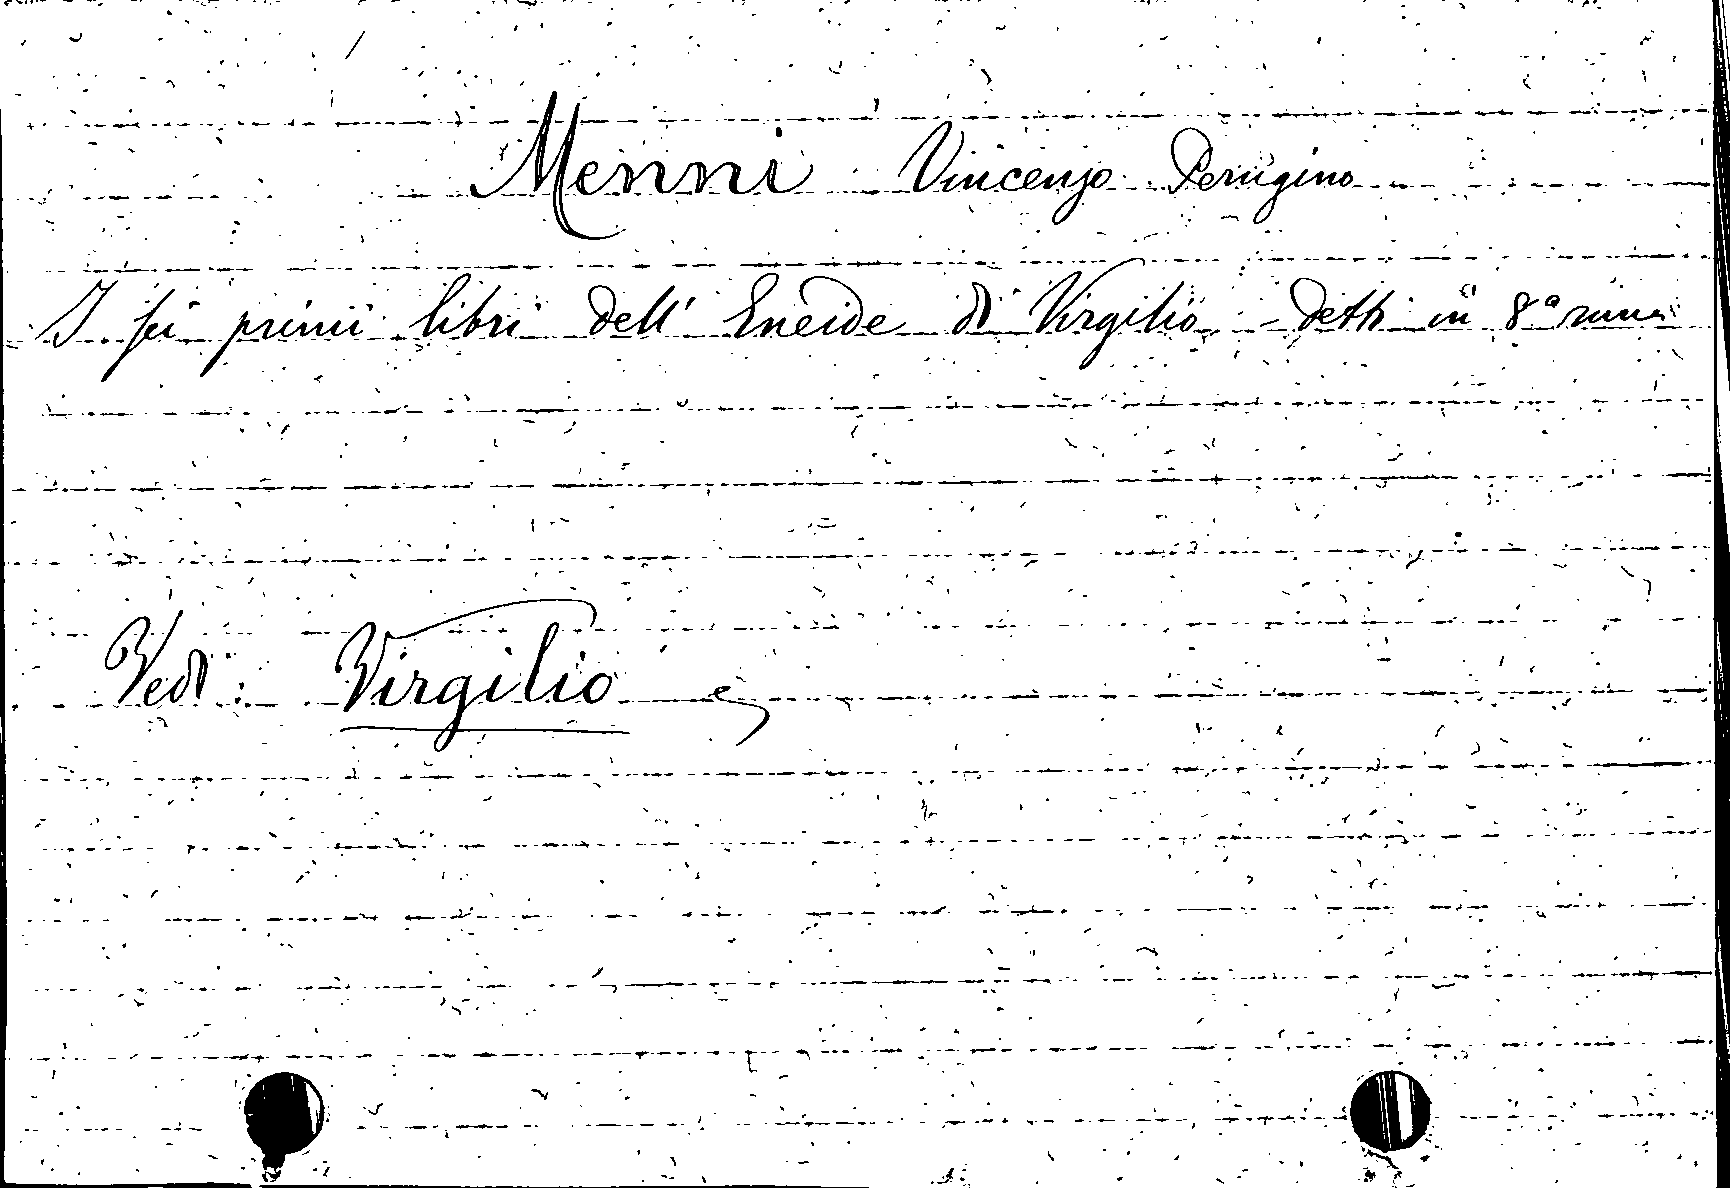 Menni Vincenzo Perugino
I sei primi libri dell' Eneide di Virgilio - detti in 8ª rima
Vedi: Virgilio